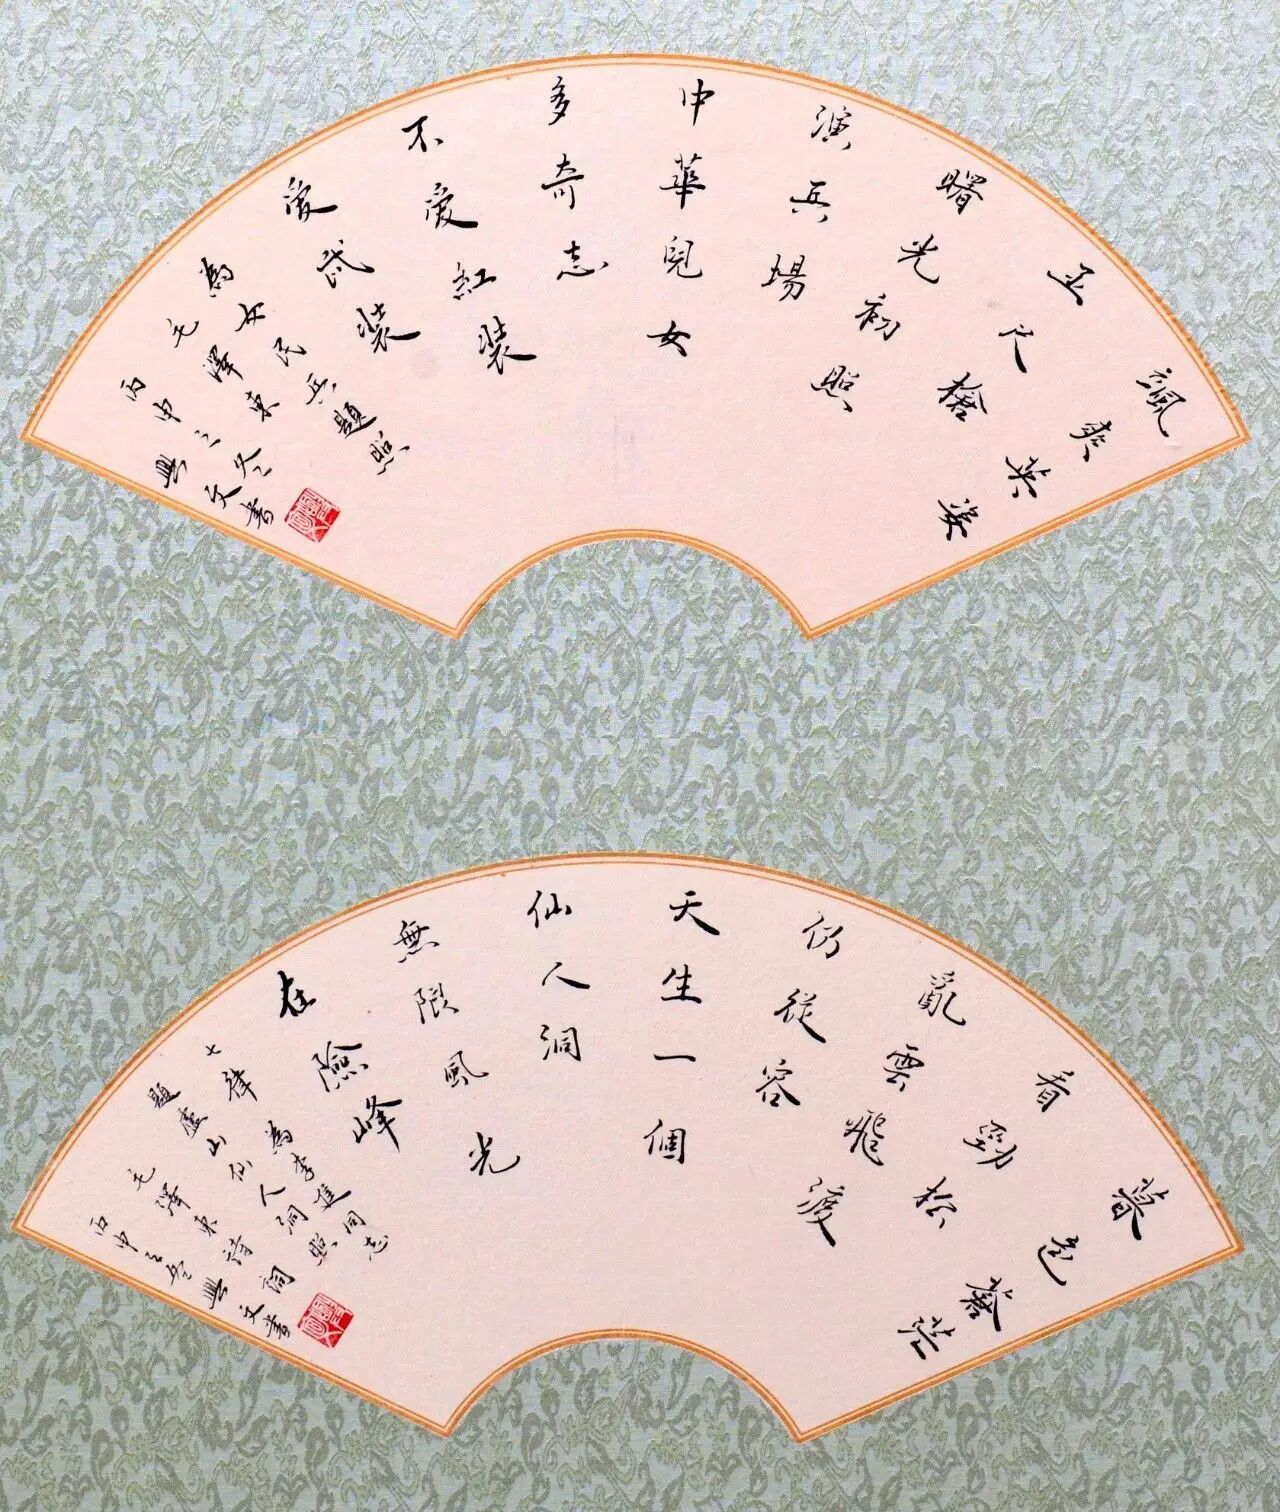 颯爽英姿
五尺槍
曙光初照
演兵場
中華兒女
多奇志
不愛紅裝
愛武裝
為女民兵題照
毛澤東
丙申之冬
興文書
暮色蒼茫
看勁松
亂雲飛渡
仍從容
天生一個
仙人洞
無限風光
在險峰
七律 為李進同志
題廬山仙人洞照
毛澤東詩詞
丙申之冬興文書